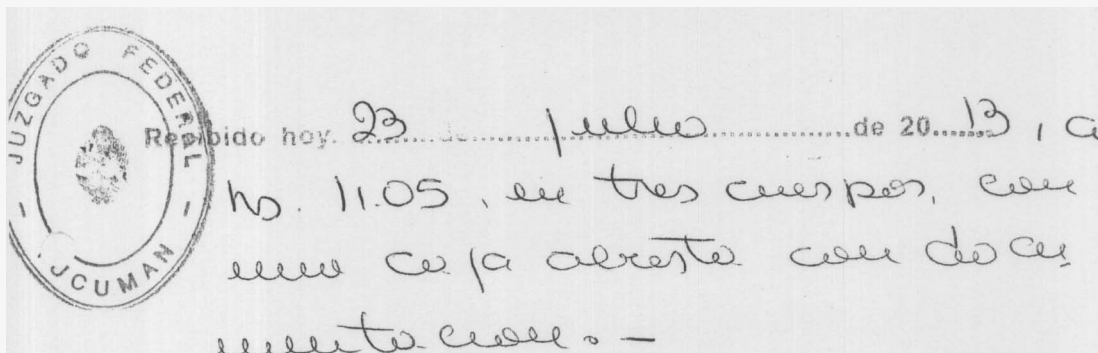 JUZGADO FEDERAL
- TUCUMAN -
Recibido hoy 23 de julio de 2013, a
hs. 11.05, en tres cuerpos, con
una caja abierta con docu
mentacion. -